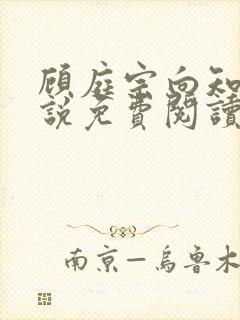 顾庭宗向知
説免費閱讀
南京—烏魯木